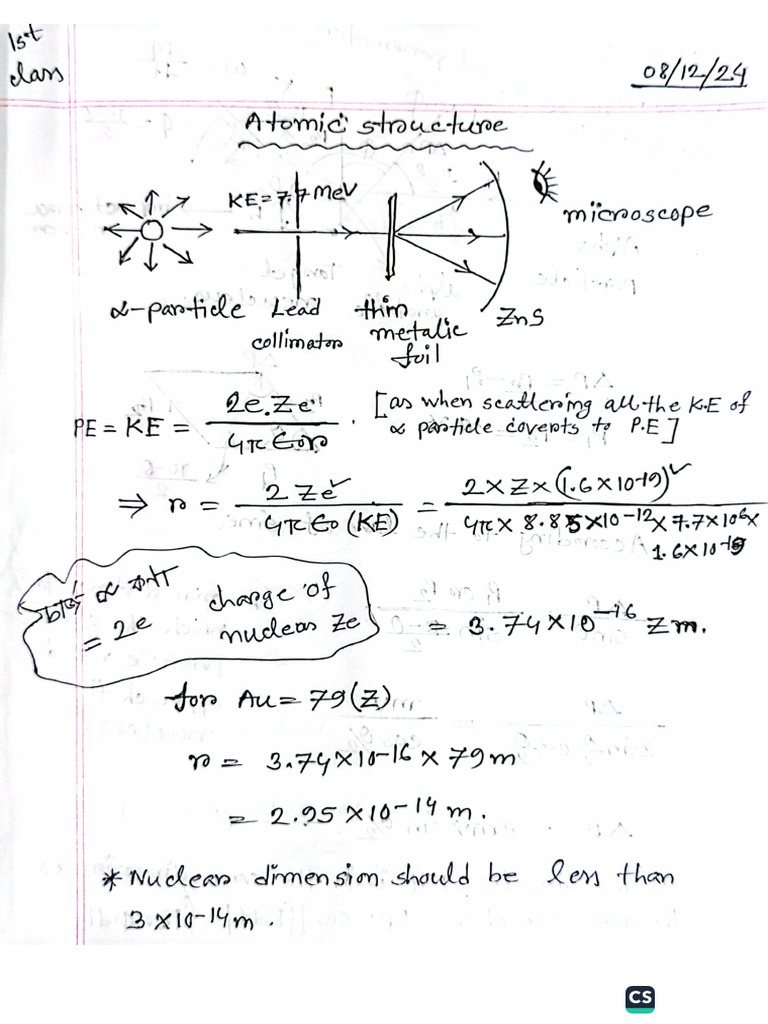 1st
class
08/12/24
Atomic structure
KE = 7.7 MeV
microscope
α-particle Lead collimator thin metalic foil ZnS
PE = KE = 2e.Ze / 4πϵ0r . [as when scattering all the K.E of
α particle coverts to P.E]
⇒ r = 2Ze² / 4πϵ0(KE) = 2×Z×(1.6×10-19)² / 4π×8.85×10-12×7.7×10⁶×1.6×10-19
α
= 2e charge of
nucleas Ze
= 3.74×10-16 Z m.
for Au = 79(Z)
r = 3.74×10-16 × 79 m
= 2.95×10-14 m.
* Nuclear dimension should be less than
3×10-14 m.
CS